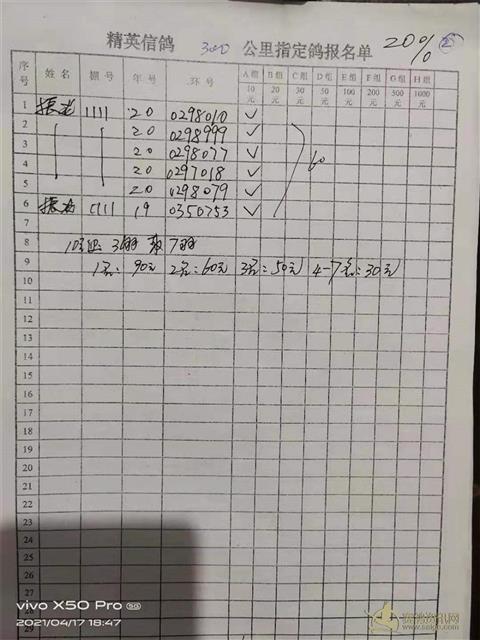 精英信鸽 300 公里指定鸽报名单 20% ②
序号 姓名 棚号 年号 环号 A组 B组 C组 D组 E组 F组 G组 H组
10元 20元 30元 50元 100元 200元 500元 1000元
1 1111 20 0298010 ✓
2 20 0298999 ✓
3 20 0298077 ✓
4 20 0297018 ✓ 60
5 20 0298079 ✓
6 1111 19 0350753 ✓
7
8 10元组 7羽
9 1名:90元 2名:60元 3名:50元 4-7名:30元
10
11
12
13
14
15
16
17
18
19
20
21
22
23
24
25
26
27
28
29
vivo X50 Pro 5G
2021/04/17 18:47